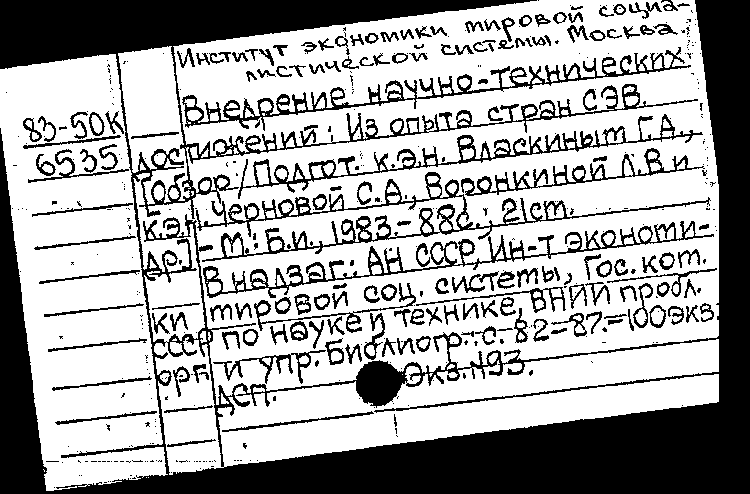 Институт экономики мировой социа-
листической системы. Москва.
83-50К
6535
Внедрение научно-технических
достижений: Из опыта стран СЭВ.
[обзор/Подгот. к.э.н. Власкиным Г.А.,
к.э.н. Черновой С.А., Воронкиной Л.В. и
др.] - М.: Б.и., 1983.- 88с.; 21см.
В надзаг.: АН СССР, Ин-т экономи-
ки мировой соц. системы, Гос. ком.
СССР по науке и технике, ВНИИ пробл.
орг. и упр. Библиогр.: с. 82=87.=100экз.
ДСП. Экз.№93.